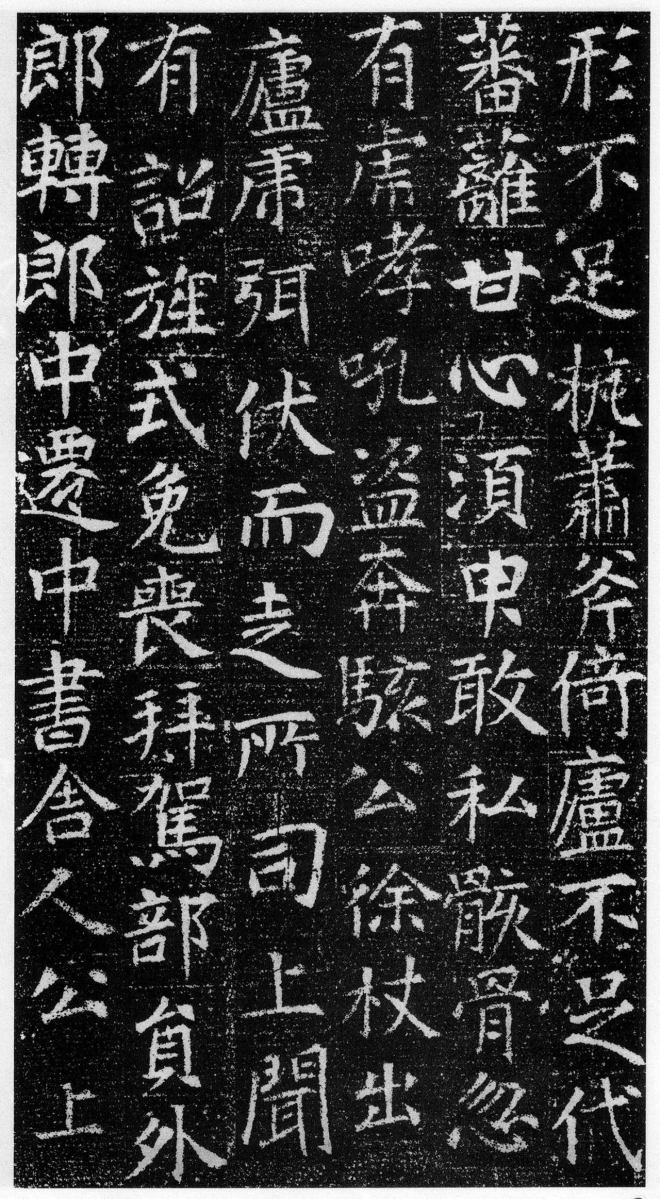 形不足㧪蕭斧倚廬不足代
蕃蘺甘心須臾敢私骸骨忽
有虎哮吼盜奔駭公徐杖出
廬虎弭伏而走所司上聞
有詔旌式免喪拜駕部員外
郎轉郎中遷中書舍人公上